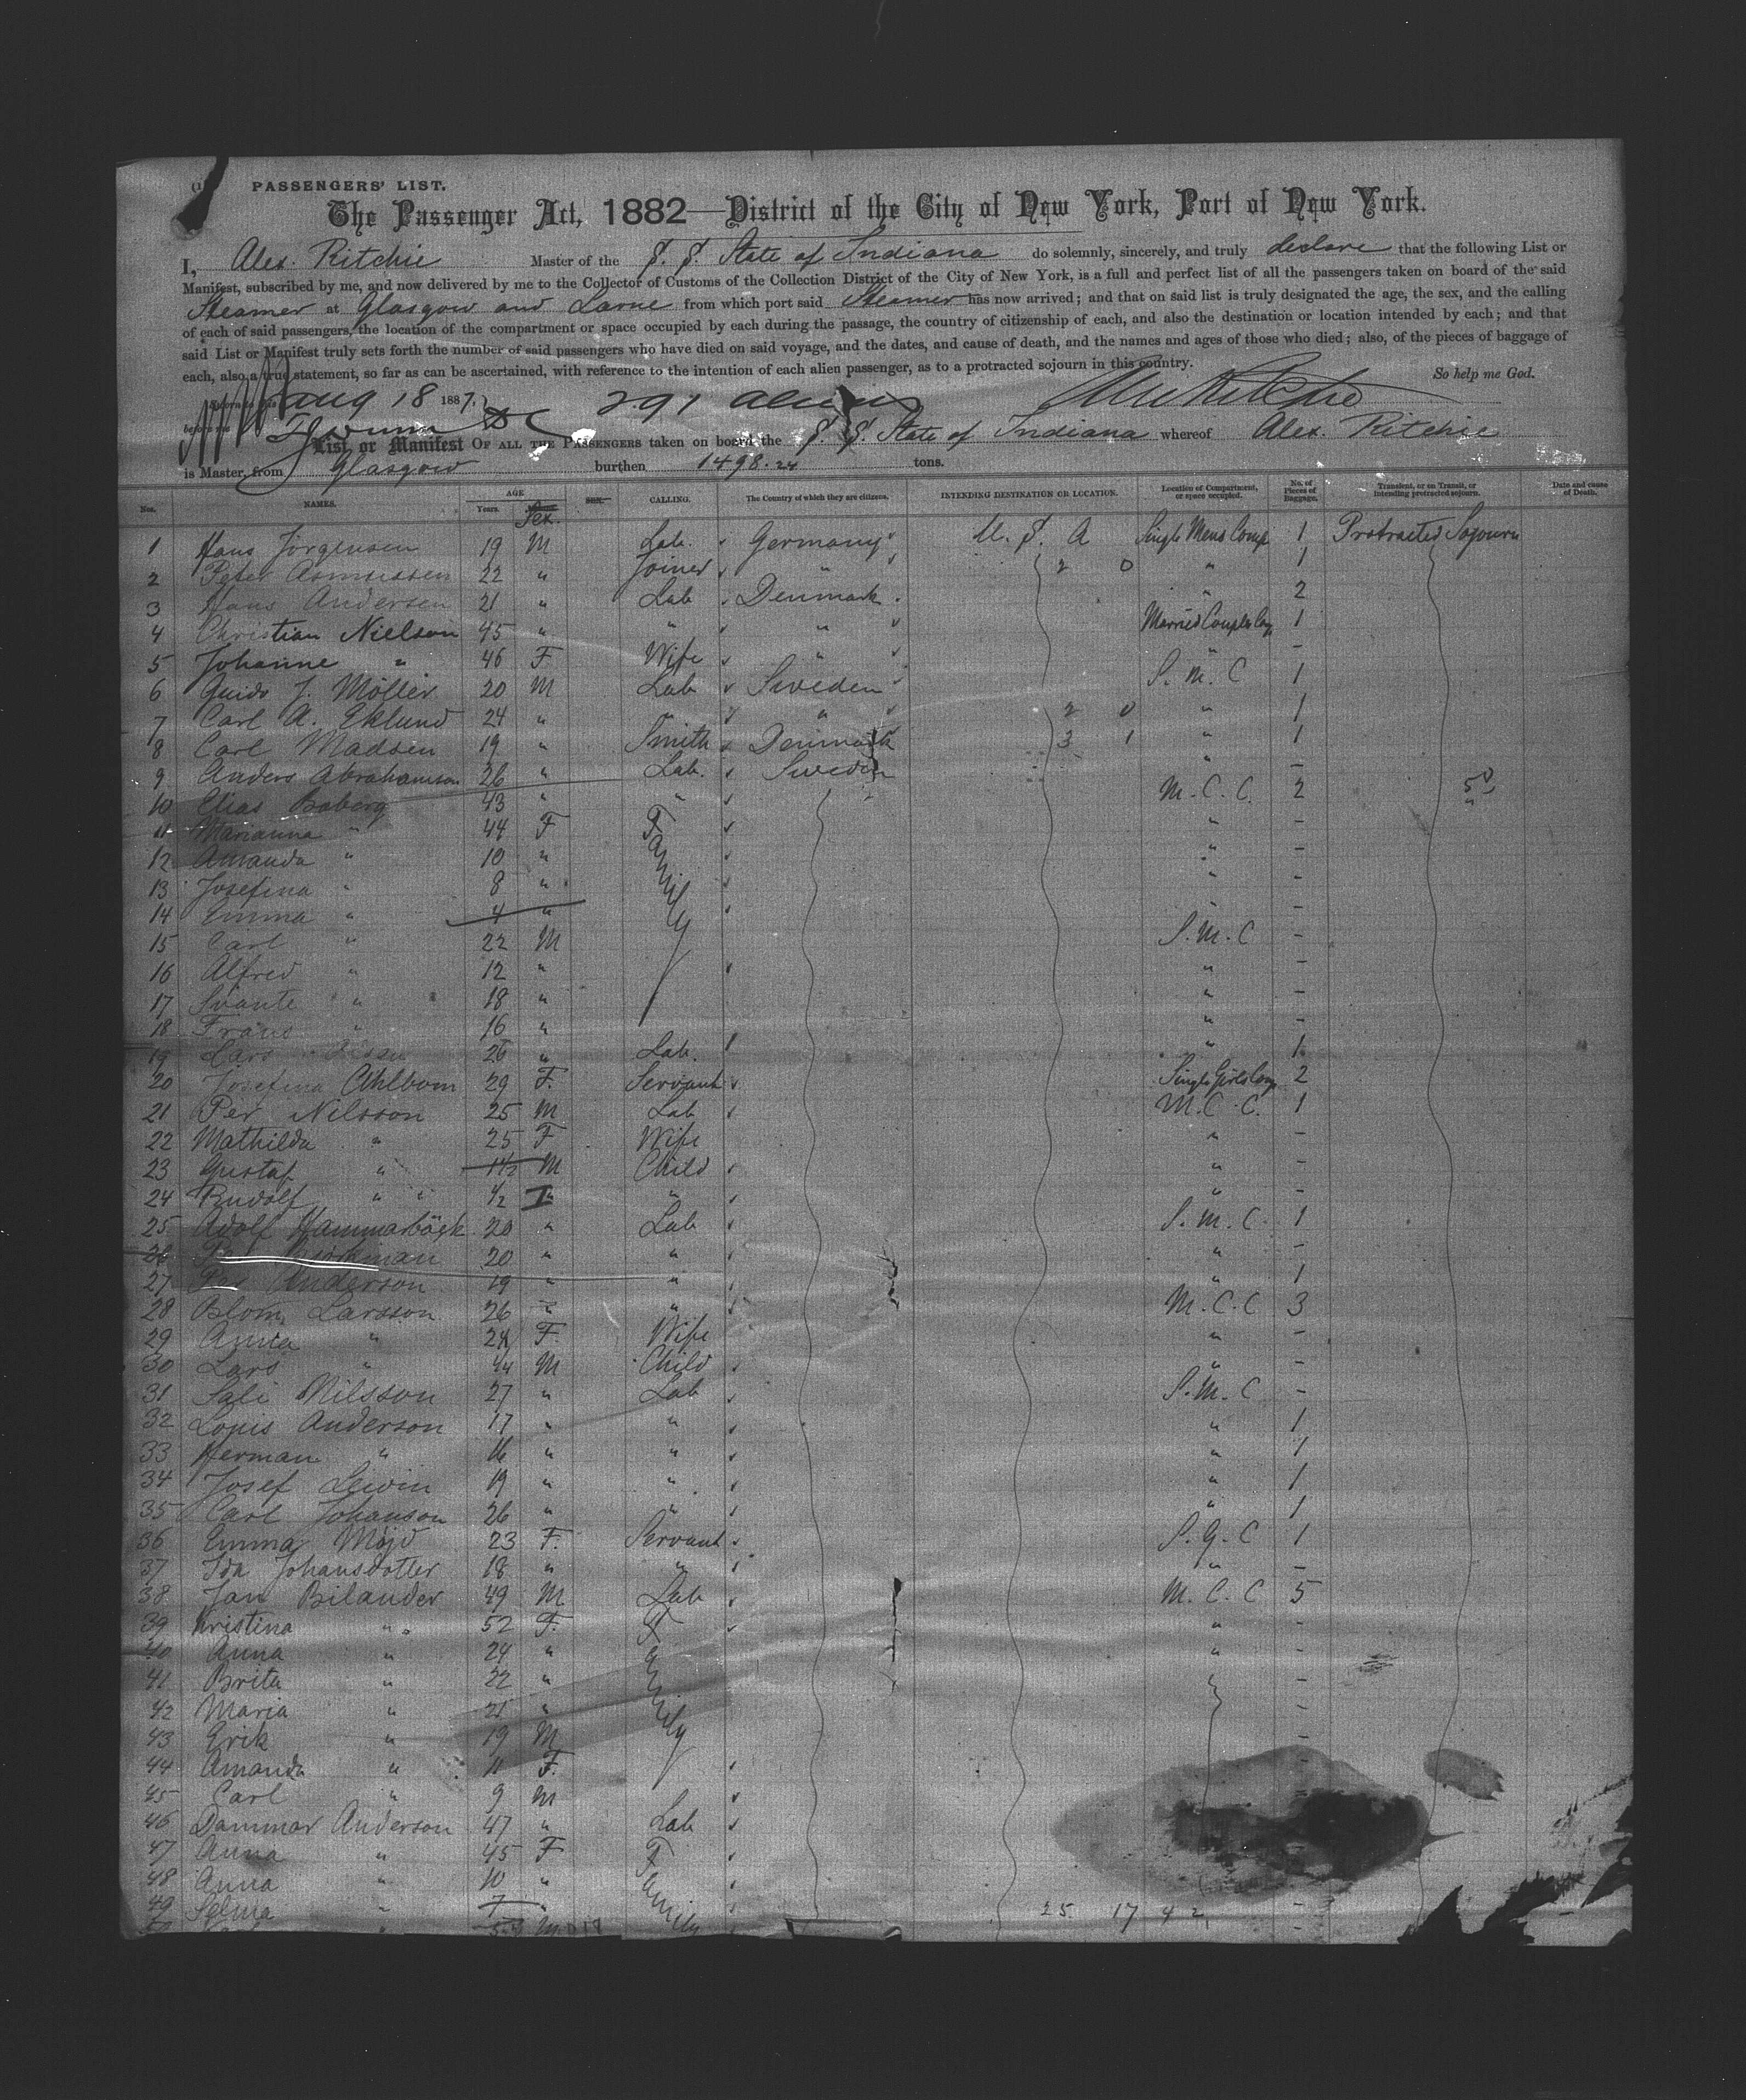 PASSENGERS' LIST.
The Passenger Act, 1882—District of the City of New York, Port of New York.
I, Alex. Ritchie Master of the S. S. State of Indiana do solemnly, sincerely, and truly declare that the following List or
Manifest, subscribed by me, and now delivered by me to the Collector of Customs of the Collection District of the City of New York, is a full and perfect list of all the passengers taken on board of the said
Steamer at Glasgow and Larne from which port said Steamer has now arrived; and that on said list is truly designated the age, the sex, and the calling
of each of said passengers, the location of the compartment or space occupied by each during the passage, the country of citizenship of each, and also the destination or location intended by each; and that
said List or Manifest truly sets forth the number of said passengers who have died on said voyage, and the dates, and cause of death, and the names and ages of those who died; also, of the pieces of baggage of
each, also a true statement, so far as can be ascertained, with reference to the intention of each alien passenger, as to a protracted sojourn in this country. So help me God.
Aug 18 1887. 291 aliens
before me
List or Manifest OF ALL THE PASSENGERS taken on board the S. S. State of Indiana whereof Alex. Ritchie
is Master, from Glasgow burthen 1498.24 tons.
Nos. NAMES. AGE Years. Sex. SEX. CALLING. The Country of which they are citizens. INTENDING DESTINATION OR LOCATION. Location of Compartment, or space occupied. No. of Pieces of Baggage. Transient, or in Transit, or intending protracted sojourn. Date and cause of Death.
1 Hans Jörgensen 19 M Lab. Germany U. S. A Single Mens Comp 1 Protracted Sojourn
2 Peter Asmussen 22 " Joiner " 2 0 " 1
3 Hans Andersen 21 " Lab Denmark " 2
4 Christian Nielson 45 " " " Married Couples Comp 1
5 Johanne " 46 F Wife " " -
6 Guido J. Möller 20 M Lab Sweden S. M. C 1
7 Carl A. Eklund 24 " " 2 0 " 1
8 Carl Madsen 19 " Smith Denmark 3 1 " 1
9 Anders Abrahamson 26 " Lab. Sweden " -
10 Elias Boberg 43 " " M. C. C. 2
11 Marianna " 44 F Family " -
12 Amanda " 10 " " -
13 Josefina " 8 " " -
14 Emma " 4 " " -
15 Carl " 22 M S. M. C -
16 Alfred " 12 " " -
17 Svante " 18 " " -
18 Frans " 16 " " -
19 Lars 26 " Lab. " 1
20 Josefina Ahlbom 29 F. Servant Single Girls Comp 2
21 Per Nilsson 25 M Lab M. C. C. 1
22 Mathilda " 25 F Wife " -
23 Gustaf " 1 1/2 M Child " -
24 Rudolf " 1/2 " " " -
25 Adolf Hammarbäck 20 " Lab S. M. C. 1
26 20 " " " -
27 Anderson 19 " " " 1
28 Blom Larsson 26 " " M. C. C 3
29 Anita " 24 F. Wife " -
30 Lars " 1/4 M Child " -
31 Sali Nilsson 27 " Lab S. M. C -
32 Louis Anderson 17 " " " 1
33 Herman " 16 " " " 1
34 Josef Lewin 19 " " " 1
35 Carl Johanson 26 " " " 1
36 Emma Möjd 23 F. Servant S. G. C 1
37 Ida Johansdotter 18 " " " -
38 Jan Bilander 49 M Lab M. C. C 5
39 Kristina " 52 F. Family " -
40 Anna " 24 " " -
41 Brita " 22 " -
42 Maria " 21 " -
43 Erik " 19 M -
44 Amanda " 11 F. -
45 Carl " 9 M
46 Dammar Anderson 47 " Lab
47 Anna " 45 F Family
48 Anna " 10 "
49 Selma " 7 " 25 17 42 -